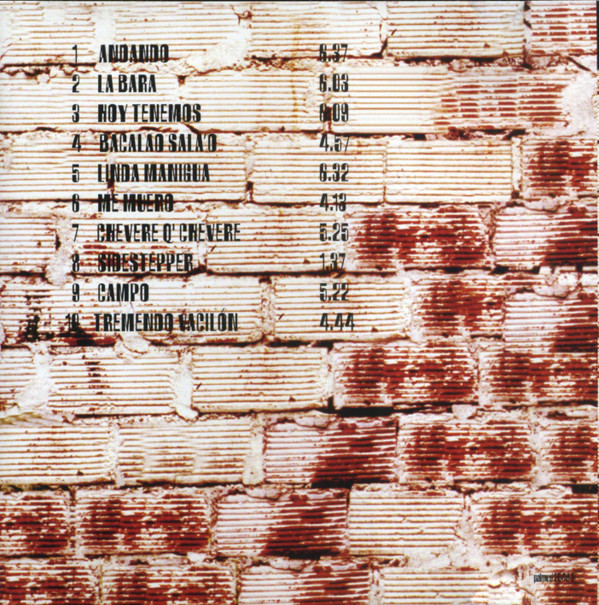 1 ANDANDO 6.37
2 LA BARA 6.03
3 HOY TENEMOS 6.09
4 BACALAO SALAO 4.57
5 LINDA MANIGUA 6.32
6 ME MUERO 4.13
7 CHEVERE Q' CHEVERE 5.25
8 SIDESTEPPER 1.37
9 CAMPO 5.22
10 TREMENDO VACILÓN 4.44